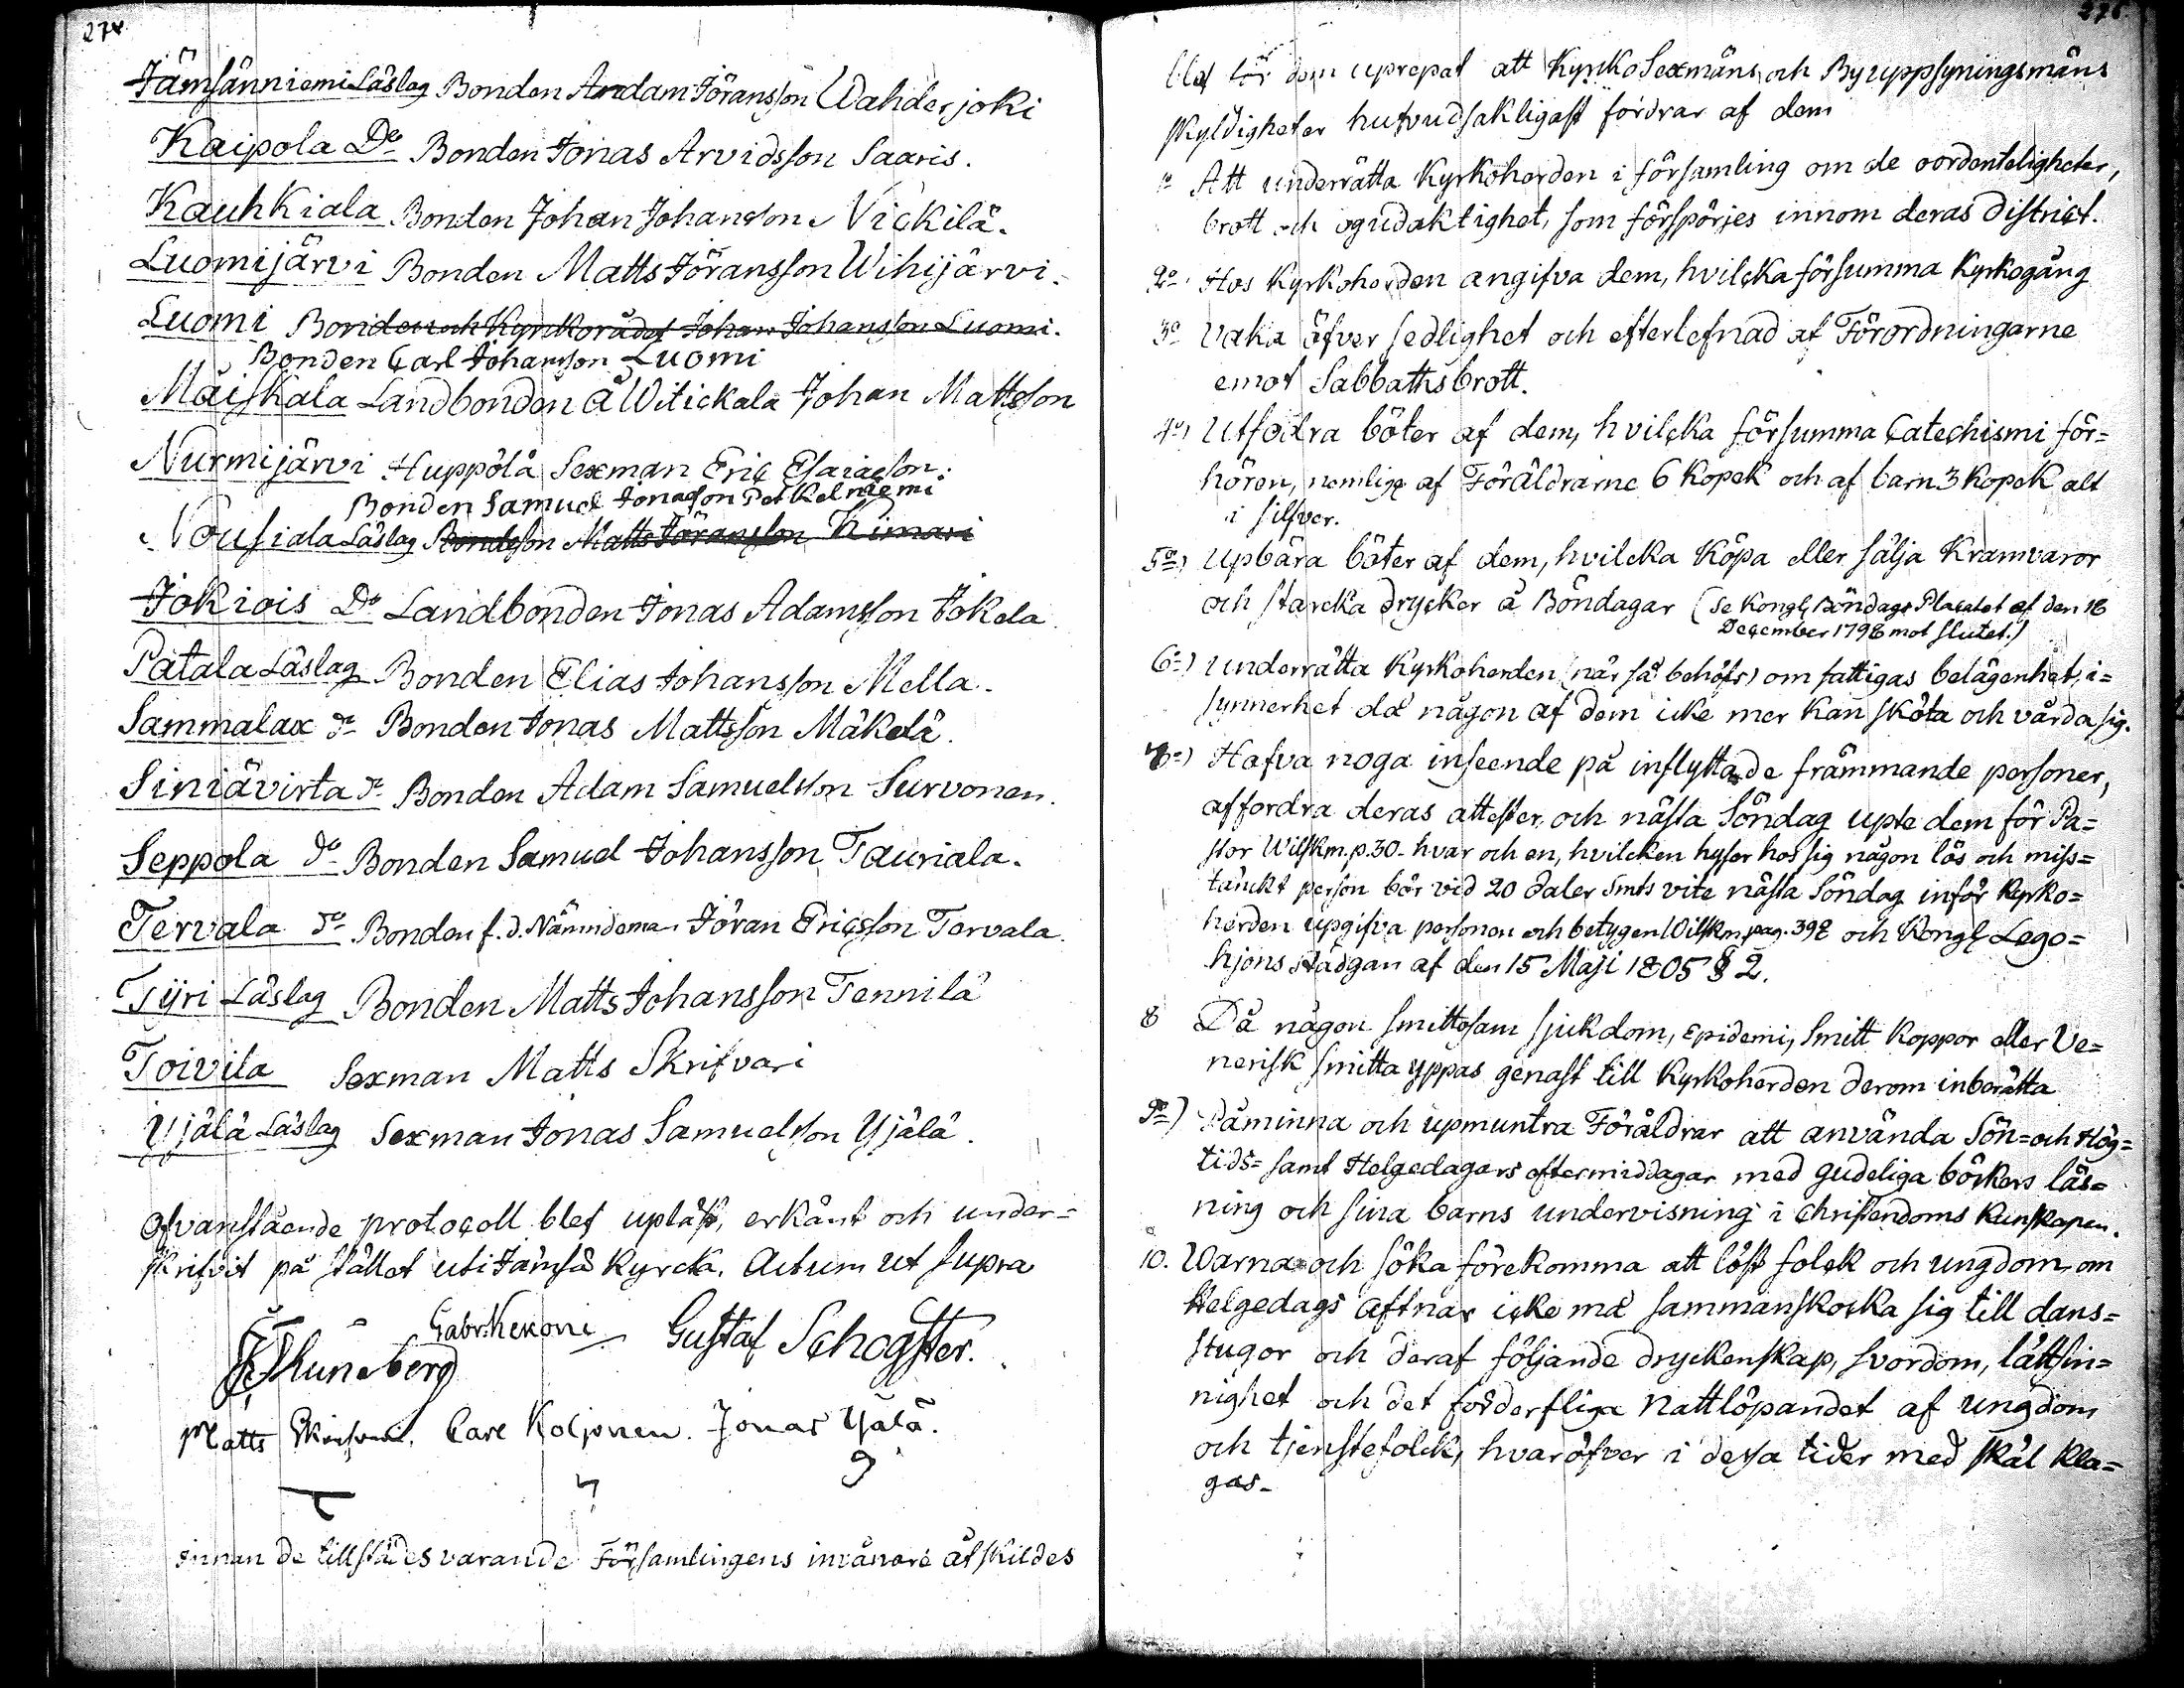 274.
Jämsänniemi Läslag Bonden Andam Jöransson Wahderjoki
Kaipola Do Bonden Jonas Arvidsson Saaris.
Kauhkiala Bonden Johan Johansson Nickilä.
Luomijärvi Bonden Matts Jöransson Wihijärvi.
Luomi Bonden och Kyrkorådet Johan Johansson Luomi.
Bonden Carl Johansson Luomi
Mäiskala Landbonden å Witickala Johan Mattsson
Nurmijärvi Huppölä Sexman Eric Esaiasson.
Bonden Samuel Jonasson Petkelniemi
Nousiala Läslag Bondeson Matts Jöransson Kimari
Jokiois Do Landbonden Jonas Adamsson Jokela
Patala Läslag Bonden Elias Johansson Mella.
Sammalax do Bonden Jonas Mattsson Mäkelä.
Siniävirta do Bonden Adam Samuelsson Survonen.
Seppola do Bonden Samuel Johansson Tauriala.
Tervala do Bonden f.d. Nämndeman Jöran Ericsson Tervala.
Tijri Läslag Bonden Matts Johansson Tennilä
Toivila Sexman Matts Skrifvari
Yjälä Läslag Sexman Jonas Samuelsson Yjälä.
Ofvanstående protocoll blef upläst, erkänt och under=
skrifvit på stället uti Jämsä Kyrcka. Actum ut supra
Gabr. Kexoni Gustaf Schogster.
Runeberg
Matts Carl Koljonen. Jonas Yälä.
Innan de tillstädesvarande Församlingens invånare åtskildes
275.
blef för dem uprepat att Kyrko Sexmäns och Byuppsyningsmäns
skyldigheter hufvudsakligast fordrar af dem
1o Att underrätta Kyrkoherden i församling om de oordenteligheter,
brott och ogudaktighet, som förspörjes innom deras district.
2o Hos Kyrkoherden angifva dem, hvilcka försumma Kyrkogång
3o Vaka öfver sedlighet och efterlefnad af Förordningarne
emot Sabbathsbrott.
4o) Utfodra böter af dem, hvilcka försumma Catechismi för=
hören, nemlige af Föräldrarne 6 Kopek och af barn 3 Kopek alt
i silfver.
5o) Upbära böter af dem, hvilcka köpa eller sälja Kramvaror
och starcka drycker å Böndagar (se Kongl. Böndags Placatet af den 18
December 1798 mot slutet.)
6o) Underrätta Kyrkoherden (när så behöfs) om fattigas belägenhet, i=
synnerhet då någon af dem icke mer kan sköta och vårda sig.
7o) Hafva noga inseende på inflyttade främmande personer,
affordra deras attester, och nästa Söndag upte dem för Pa=
stor Wilskm. p. 30. hvar och en, hvilcken hyser hos sig någon lös och miss=
tänckt person bör vid 20 daler Smts vite nästa Söndag inför Kyrko=
herden upgifva personen och betygen Wilskm. pag. 398 och Kongl. Lego=
hjons stadgan af den 15 Maji 1805 § 2.
8 Då någon smittosam sjukdom, Epidemi, Smitt Koppor eller Ve=
nerisk smitta yppas genast till Kyrkoherden derom inberätta
9o) Påminna och upmuntra Föräldrar att använda Sön= och Hög=
tids= samt Helgedagars eftermiddagar med gudeliga böckers läs=
ning och sina barns undervisning i Christendoms Kunskapen.
10. Warna och söka förekomma att löst folck och ungdom om
Helgedags aftnar icke må sammanskocka sig till dans=
stugor och deraf följande dryckenskap, svordom, lättsin=
nighet och det förderflige nattlöpandet af ungdom
och tjenstefolck, hvaröfver i dessa tider med skäl kla=
gas.